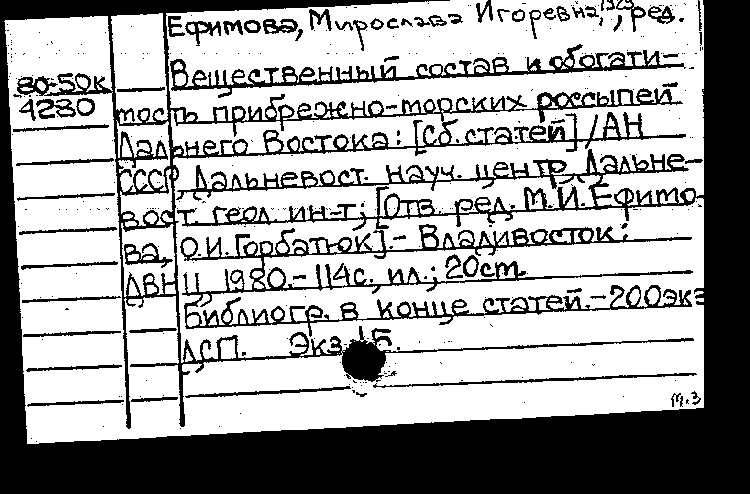 Ефимова, Мирослава Игоревна, ред.
80-50к
4280
Вещественный состав и обогати-
мость прибрежно-морских россыпей
Дальнего Востока: [Сб. статей] / АН
СССР, Дальневост. науч. центр, Дальне-
вост. геол. ин-т; [Отв. ред. М.И. Ефимо-
ва, О.И. Горбатюк]. - Владивосток:
ДВНЦ, 1980. - 114с., ил.; 20см.
Библиогр. в конце статей. - 200экз
ДСП. Экз. 15.
м.3